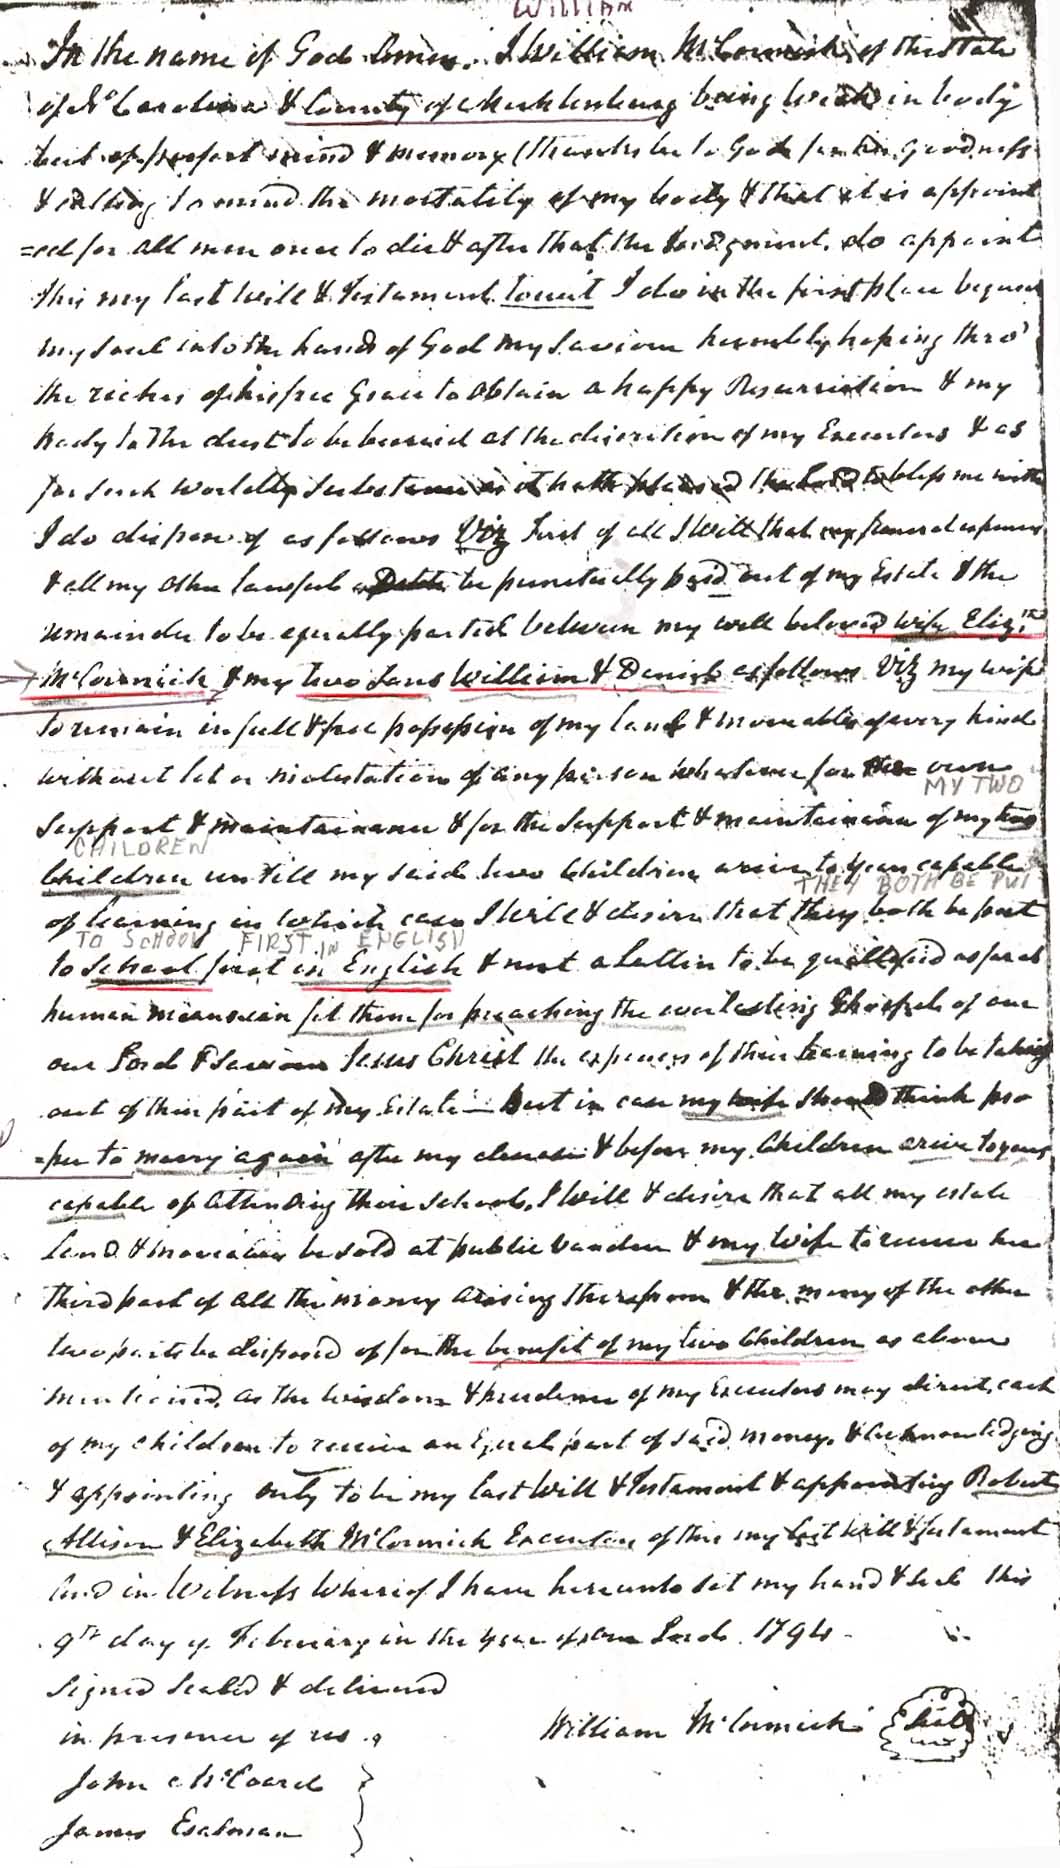 WILLIAM
In the name of God Amen. I William McCormick of the State
of No Carolina & County of Mecklenburg being weak in body
but of prefect mind & memory (thanks be to God for his goodness
& calling to mind the mortality of my body & that it is appoint
=ed for all men once to die & after that the Judgment, do appoint
this my last Will & Testament towit I do in the first place bequeu
my Soul into the hands of God my Saviour humbly hoping thro'
the riches of his free Grace to obtain a happy Resurrection & my
body to the dust to be burried at the discretion of my Executors & as
for such worldly substance as it hath pleased the Lord to bless me with
I do dispose of as follows Viz First of all I Will that my funeral expenses
& all my other lawful Debts be punctually paid out of my Estate & the
remainder to be equally parted between my well beloved wife Eliz.th
McCormick & my two sons William & Denish as follows Viz my wife
to remain in full & free possession of my land & moveables of every kind
without let or molestation of any person whatever for her own
MY TWO
Support & maintainance & for the Support & maintainance of my two
CHILDREN
Children untill my said two Children arive to years capable
THEY BOTH BE PUT
of learning in which case I Will & desire that they both be put
TO SCHOOL FIRST IN ENGLISH
to School first in English & next a Lattin to be quallified as far as
human means can fit them for preaching the everlasting Ghospel of our
our Lord & Saviour Jesus Christ the expences of their learning to be taking
out of their part of my Estate - But in case my wife should think pro
=per to marry again after my decease & before my Children arive to years
capable of attending their schools, I Will & desire that all my estate
Land & moveables be sold at public vandue & my wife to receive her
third part of all the money arising therefrom & the money of the other
two parts be disposed of for the benefit of my two Children as above
mentioned, as the wisdom & prudence of my Executors may direct, each
of my children to receive an Equal part of said money. & Acknowledging
& appointing only to be my last Will & Testament & appointing Robert
Allison & Elizabeth McCormick Executors of this my last Will & Testament
And in Witness Whereof I have hereunto set my hand & seal this
9th day of February in the year of our Lord 1794
Signed Sealed & delivered
in presence of us
William McCormick Seal
John McCoard
James